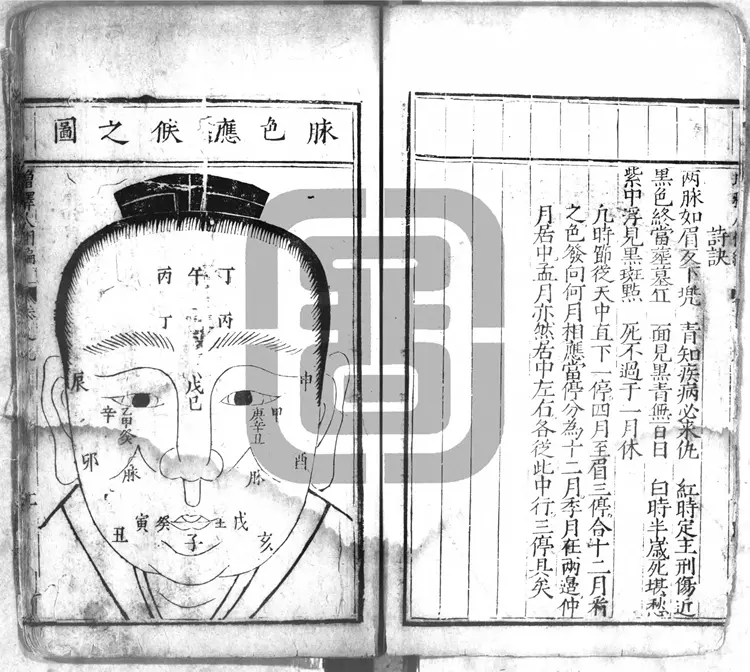 詩訣
两脉如眉及下兠 青知疾病必来仇 紅時定主刑傷近
黑色終當葬墓丘 面見黑青無百日 白時半歲死堪愁
紫中浮見黑斑點 死不過于一月休
凡時節從天中直下一停四月至眉三停合十二月看
之色發向何月相應當停分為十二月季月在兩邉仲
月居中孟月亦然右中左右各從此中行三停具矣
脉色應候之圖
丁
午
丙
丙
丁
申
戊己
辰
甲
庚辛丑
乙甲癸
辛
酉
卯
脉
脉
戊
壬
癸
寅
丑
子
亥